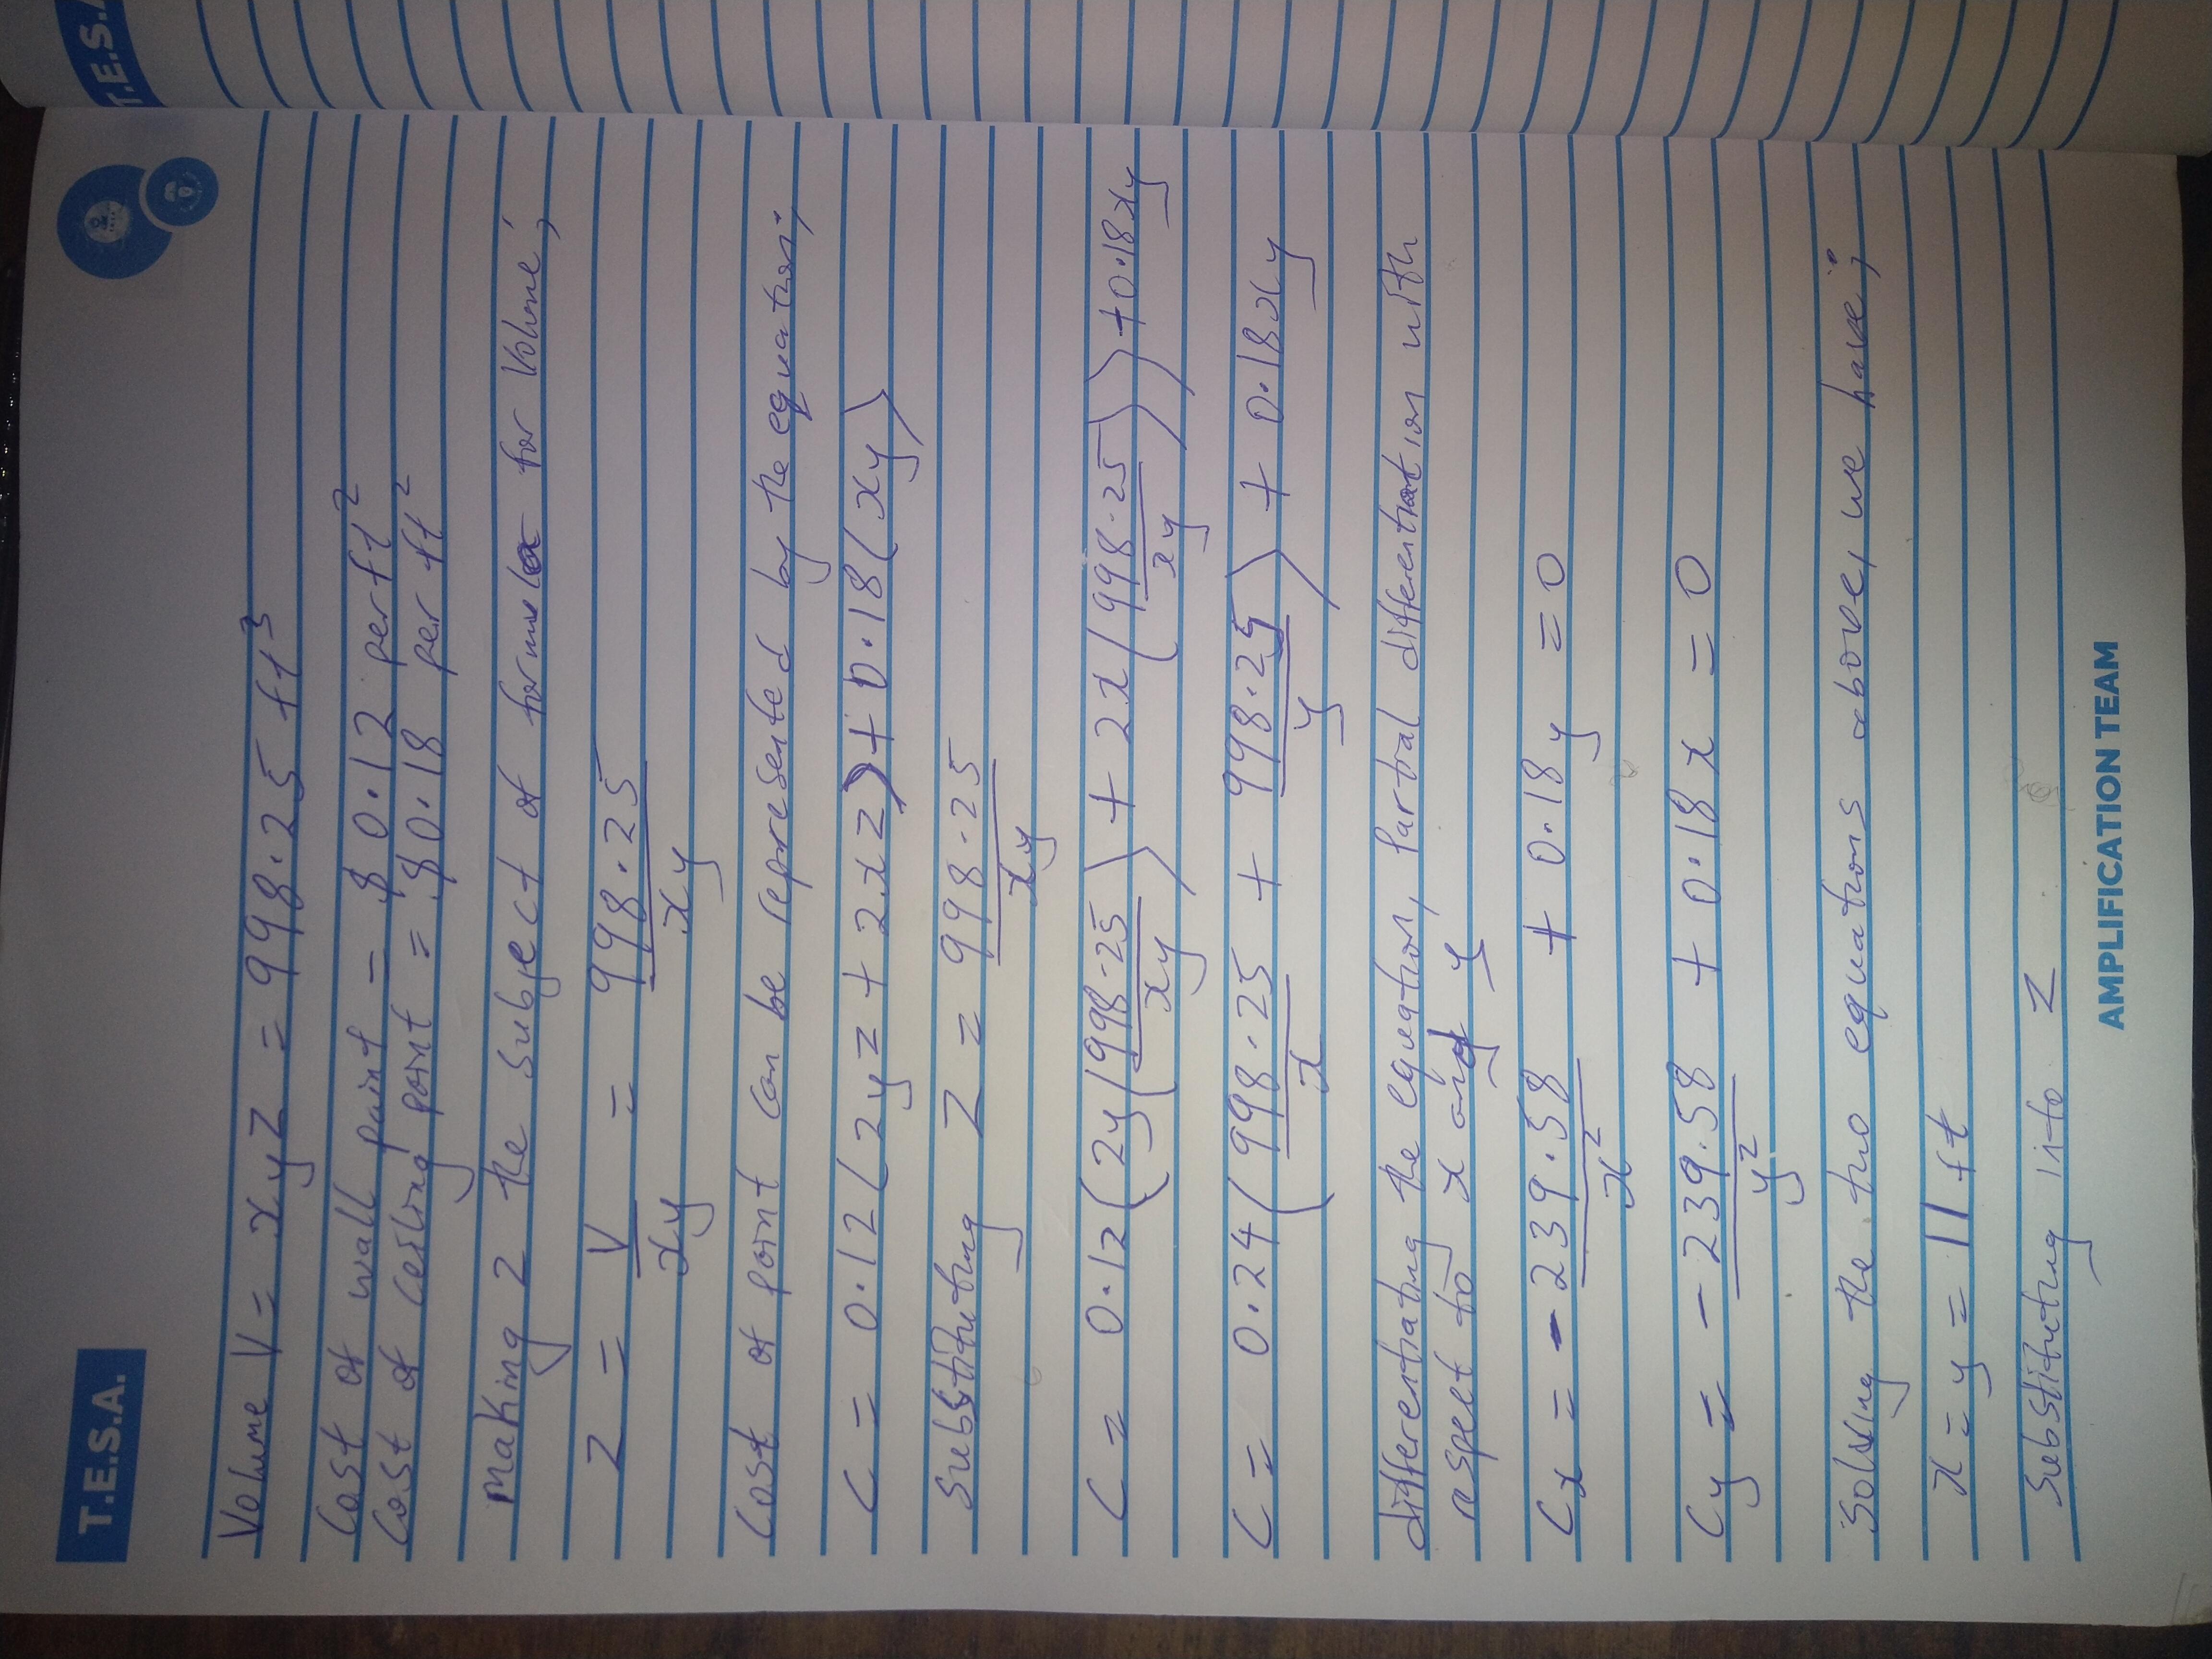 T.E.S.A.
T.E.S.A
Volume V = xyz = 998.25 ft³
Cost of wall paint = $ 0.12 per ft²
Cost of ceiling paint = $ 0.18 per ft²
Making z the subject of formula for volume;
z = V/xy = 998.25/xy
Cost of paint can be represented by the equation;
C = 0.12(2yz + 2xz) + 0.18(xy)
Substituting z = 998.25/xy
C = 0.12(2y(998.25/xy) + 2x(998.25/xy)) + 0.18xy
C = 0.24(998.25/x + 998.25/y) + 0.18xy
differentiating the equation, partial differentiation with
respect to x and y
Cx = -239.58/x² + 0.18y = 0
Cy = -239.58/y² + 0.18x = 0
Solving the two equations above, we have;
x = y = 11 ft
Substituting into z
AMPLIFICATION TEAM